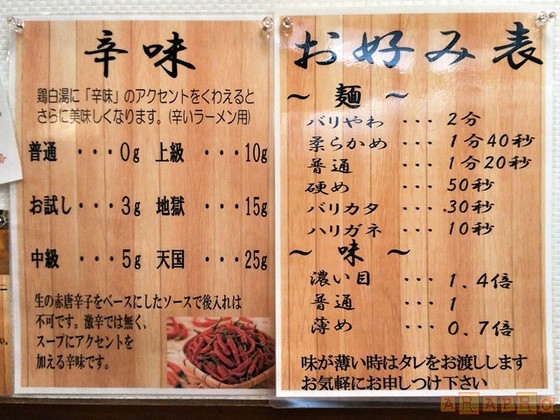 辛味
鶏白湯に「辛味」のアクセントをくわえると
さらに美味しくなります。(辛いラーメン用)
普通 ・・・0g 上級 ・・・10g
お試し・・・3g 地獄 ・・・15g
中級 ・・・5g 天国 ・・・25g
生の赤唐辛子をベースにしたソースで後入れは
不可です。激辛では無く、
スープにアクセントを
加える辛味です。
お好み表
～ 麺 ～
バリやわ ・・・ 2分
柔らかめ ・・・ 1分40秒
普通 ・・・ 1分20秒
硬め ・・・ 50秒
バリカタ ・・・ 30秒
ハリガネ ・・・ 10秒
～ 味 ～
濃い目 ・・・ 1.4倍
普通 ・・・ 1
薄め ・・・ 0.7倍
味が薄い時はタレをお渡しします
お気軽にお申しつけ下さい
ARAPRO